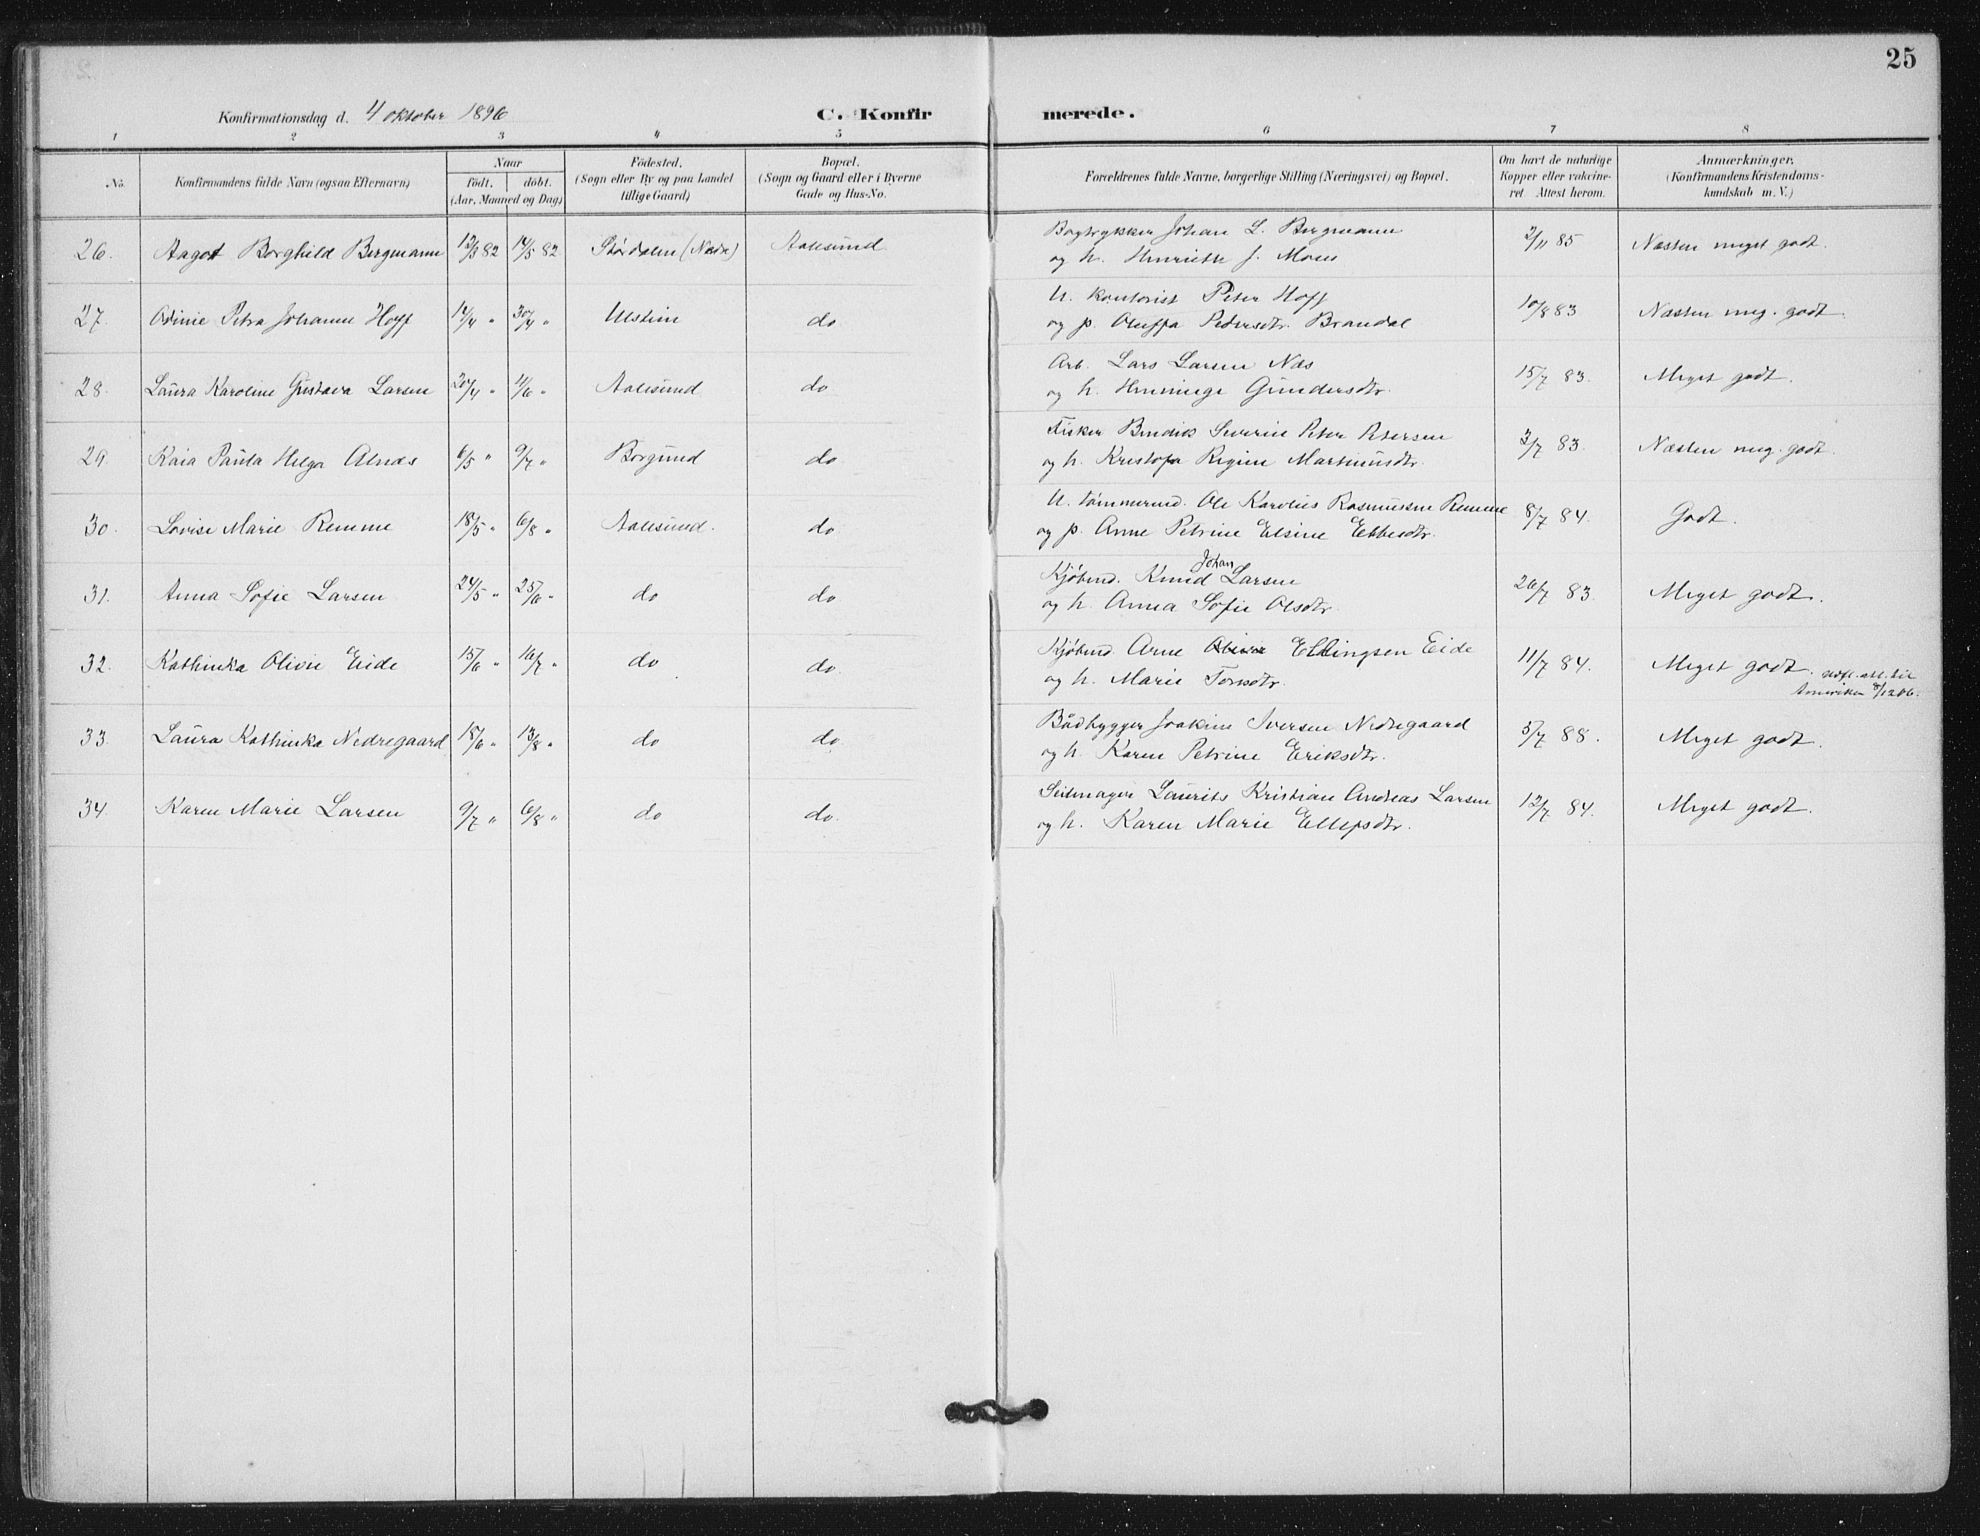 25
Konfirmationsdag d. 4 oktober 1896 C. Konfirmerede.
1 2 3 4 5 6 7 8
No. Konfirmandens fulde Navn (ogsaa Efternavn) Naar födt. döbt. (Aar, Maaned og Dag) Födested. (Sogn eller By og paa Landet tillige Gaard) Bopæl. (Sogn og Gaard eller i Byerne Gade og Hus-No. Forældrenes fulde Navne, borgerlige Stilling (Næringsvei) og Bopæl. Om havt de naturlige Kopper eller vakcineret Attest herom. Anmærkninger. (Konfirmandens Kristendomskundskab m. V.)
26. Aagot Borghild Bergmann 12/3 82 14/5 82 Stördalen (Nedre) Aalesund Bogtrykker Johan L. Bergmann 2/11 85 Næsten meget godt.
og h. Henriette J. Moses
27. Odinie Petra Johanne Hoff 14/4 " 30/4 " Ulstein do U. kontorist Peter Hoff 10/8 83 Næsten meg. godt.
og p. Oluffa Pedersdtr. Brandal
28. Laura Karoline Gustava Larsen 20/4 " 11/6 " Aalesund do Arb. Lars Larsen Næs 15/7 83. Meget godt.
og h. Henninge Gundersdtr.
29. Kaia Paula Helga Alnæs 6/5 " 9/7 " Borgund do Fisker Bendik Severin Peter Petersen 3/7 83. Næsten meg. godt.
og h. Kristofa Regine Martinusdtr.
30. Lovise Marie Remme 18/5 " 6/8 " Aalesund. do U. tömmermd. Ole Karolius Rasmussen Remme 8/7 84. Godt.
og p. Anne Petrine Elsine Ebbesdtr.
31. Anna Sofie Larsen 24/5 " 25/6 " do do Kjöbmd. Knud Johan Larsen 26/7 83. Meget godt.
og h. Anna Sofie Olsdtr.
32. Kathinka Olivie Eide 15/6 " 16/7 " do do Kjöbmd. Arne Ellingsen Eide 11/7 84. Meget godt. att. til
og h. Marie Tonsdtr. Amerika 06.
33. Laura Kathinka Nedregaard 18/6 " 13/8 " do do. Bådbygger Joakim Iversen Nedregaard 5/7 88. Meget godt.
og h. Karen Petrine Eriksdtr.
34. Karen Marie Larsen 9/7 " 6/8 " do do. Seilmager Laurits Kristian Andreas Larsen 12/7 84. Meget godt.
og h. Karen Marie Ellefsdtr.